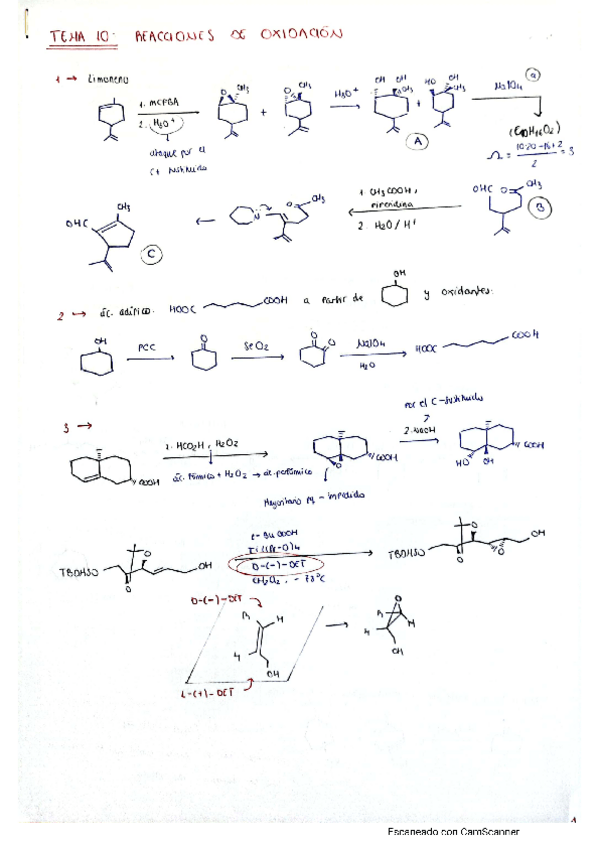 TEMA 10: REACCIONES DE OXIDACIÓN
1 → Limoneno
1. MCPBA
2. H3O+
ataque por el
C+ sustituido
O CH3 + O CH3
H3O+
OH OH CH3 + HO OH CH3
A
NaIO4 a
(C10H16O2)
Ω = 10·20-16+2 / 2 = 3
OHC O CH3
B
1. CH3COOH,
piperidina
2. H2O/H+
N O CH3
OHC CH3
C
2 → ác. adípico: HOOC COOH a partir de OH y oxidantes.
OH PCC O SeO2 O O NaIO4 H2O HOOC COOH
3 →
COOH
1. HCO2H, H2O2
ác. fórmico + H2O2 → ác. perfórmico
O COOH
Mayoritario pq - impedido
por el C-sustituido
2. NaOH
HO OH COOH
TBDMSO O O OH
t-BuOOH
Ti(iPr-O)4
D-(-)-DET
CH2Cl2, -78ºC
TBDMSO O O O OH
D-(-)-DET
R H
H
OH
L-(+)-DET
O R H H OH
Escaneado con CamScanner